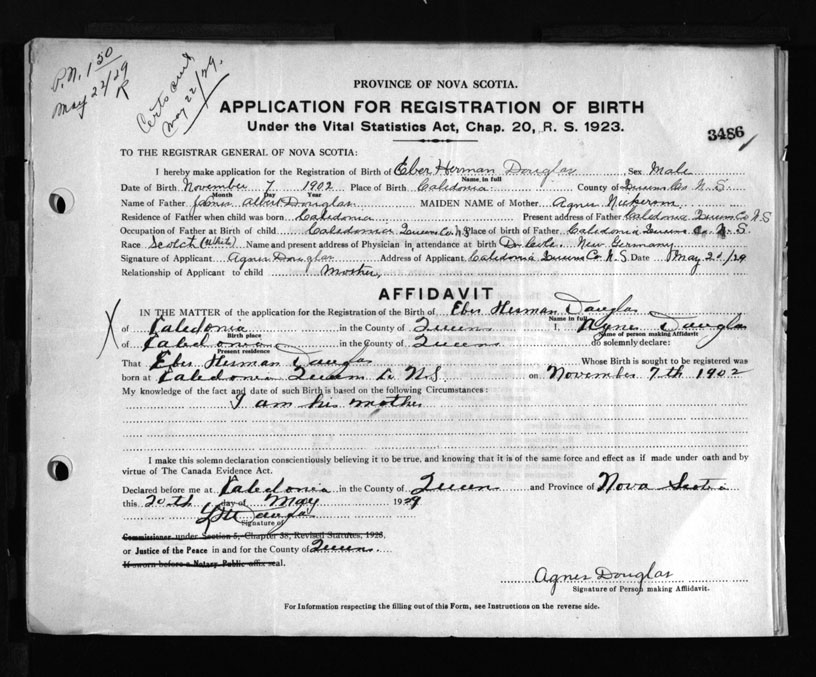 P.N. 1 50
May 22/29
R
Certs and
May 22/29.
PROVINCE OF NOVA SCOTIA.
APPLICATION FOR REGISTRATION OF BIRTH
Under the Vital Statistics Act, Chap. 20, R. S. 1923.
3486
TO THE REGISTRAR GENERAL OF NOVA SCOTIA:
I hereby make application for the Registration of Birth of Eber Herman Douglas Sex Male
Name in full
Date of Birth November 7 1902 Place of Birth Caledonia County of Queens Co N S
Month Day Year
Name of Father James Albert Douglas MAIDEN NAME of Mother Agnes Nickerson
Residence of Father when child was born Caledonia Present address of Father Caledonia Queens Co N S
Occupation of Father at Birth of child Caledonia Queens Co N S Place of birth of Father Caledonia Queens Co. N. S
Race Scotch (White) Name and present address of Physician in attendance at birth Dr. New Germany
Signature of Applicant Agnes Douglas Address of Applicant Caledonia Queens Co N. S. Date May 20/29
Relationship of Applicant to child Mother,
AFFIDAVIT
IN THE MATTER of the application for the Registration of the Birth of Eber Herman Douglas
Name in full
of Caledonia in the County of Queens I, Agnes Douglas
Birth place Name of person making Affidavit
of Caledonia in the County of Queens do solemnly declare:
Present residence
That Eber Herman Douglas Whose Birth is sought to be registered was
born at Caledonia Queens Co N.S. on November 7th 1902
My knowledge of the fact and date of such Birth is based on the following Circumstances:
I am his mother
I make this solemn declaration conscientiously believing it to be true, and knowing that it is of the same force and effect as if made under oath and by
virtue of The Canada Evidence Act.
Declared before me at Caledonia in the County of Queens and Province of Nova Scotia
this 20th day of May 1929
Douglas
Signature of
Commissioner under Section 5, Chapter 38, Revised Statutes, 1923,
or Justice of the Peace in and for the County of Queens.
If sworn before a Notary Public affix seal.
Agnes Douglas
Signature of Person making Affidavit.
For Information respecting the filling out of this Form, see Instructions on the reverse side.